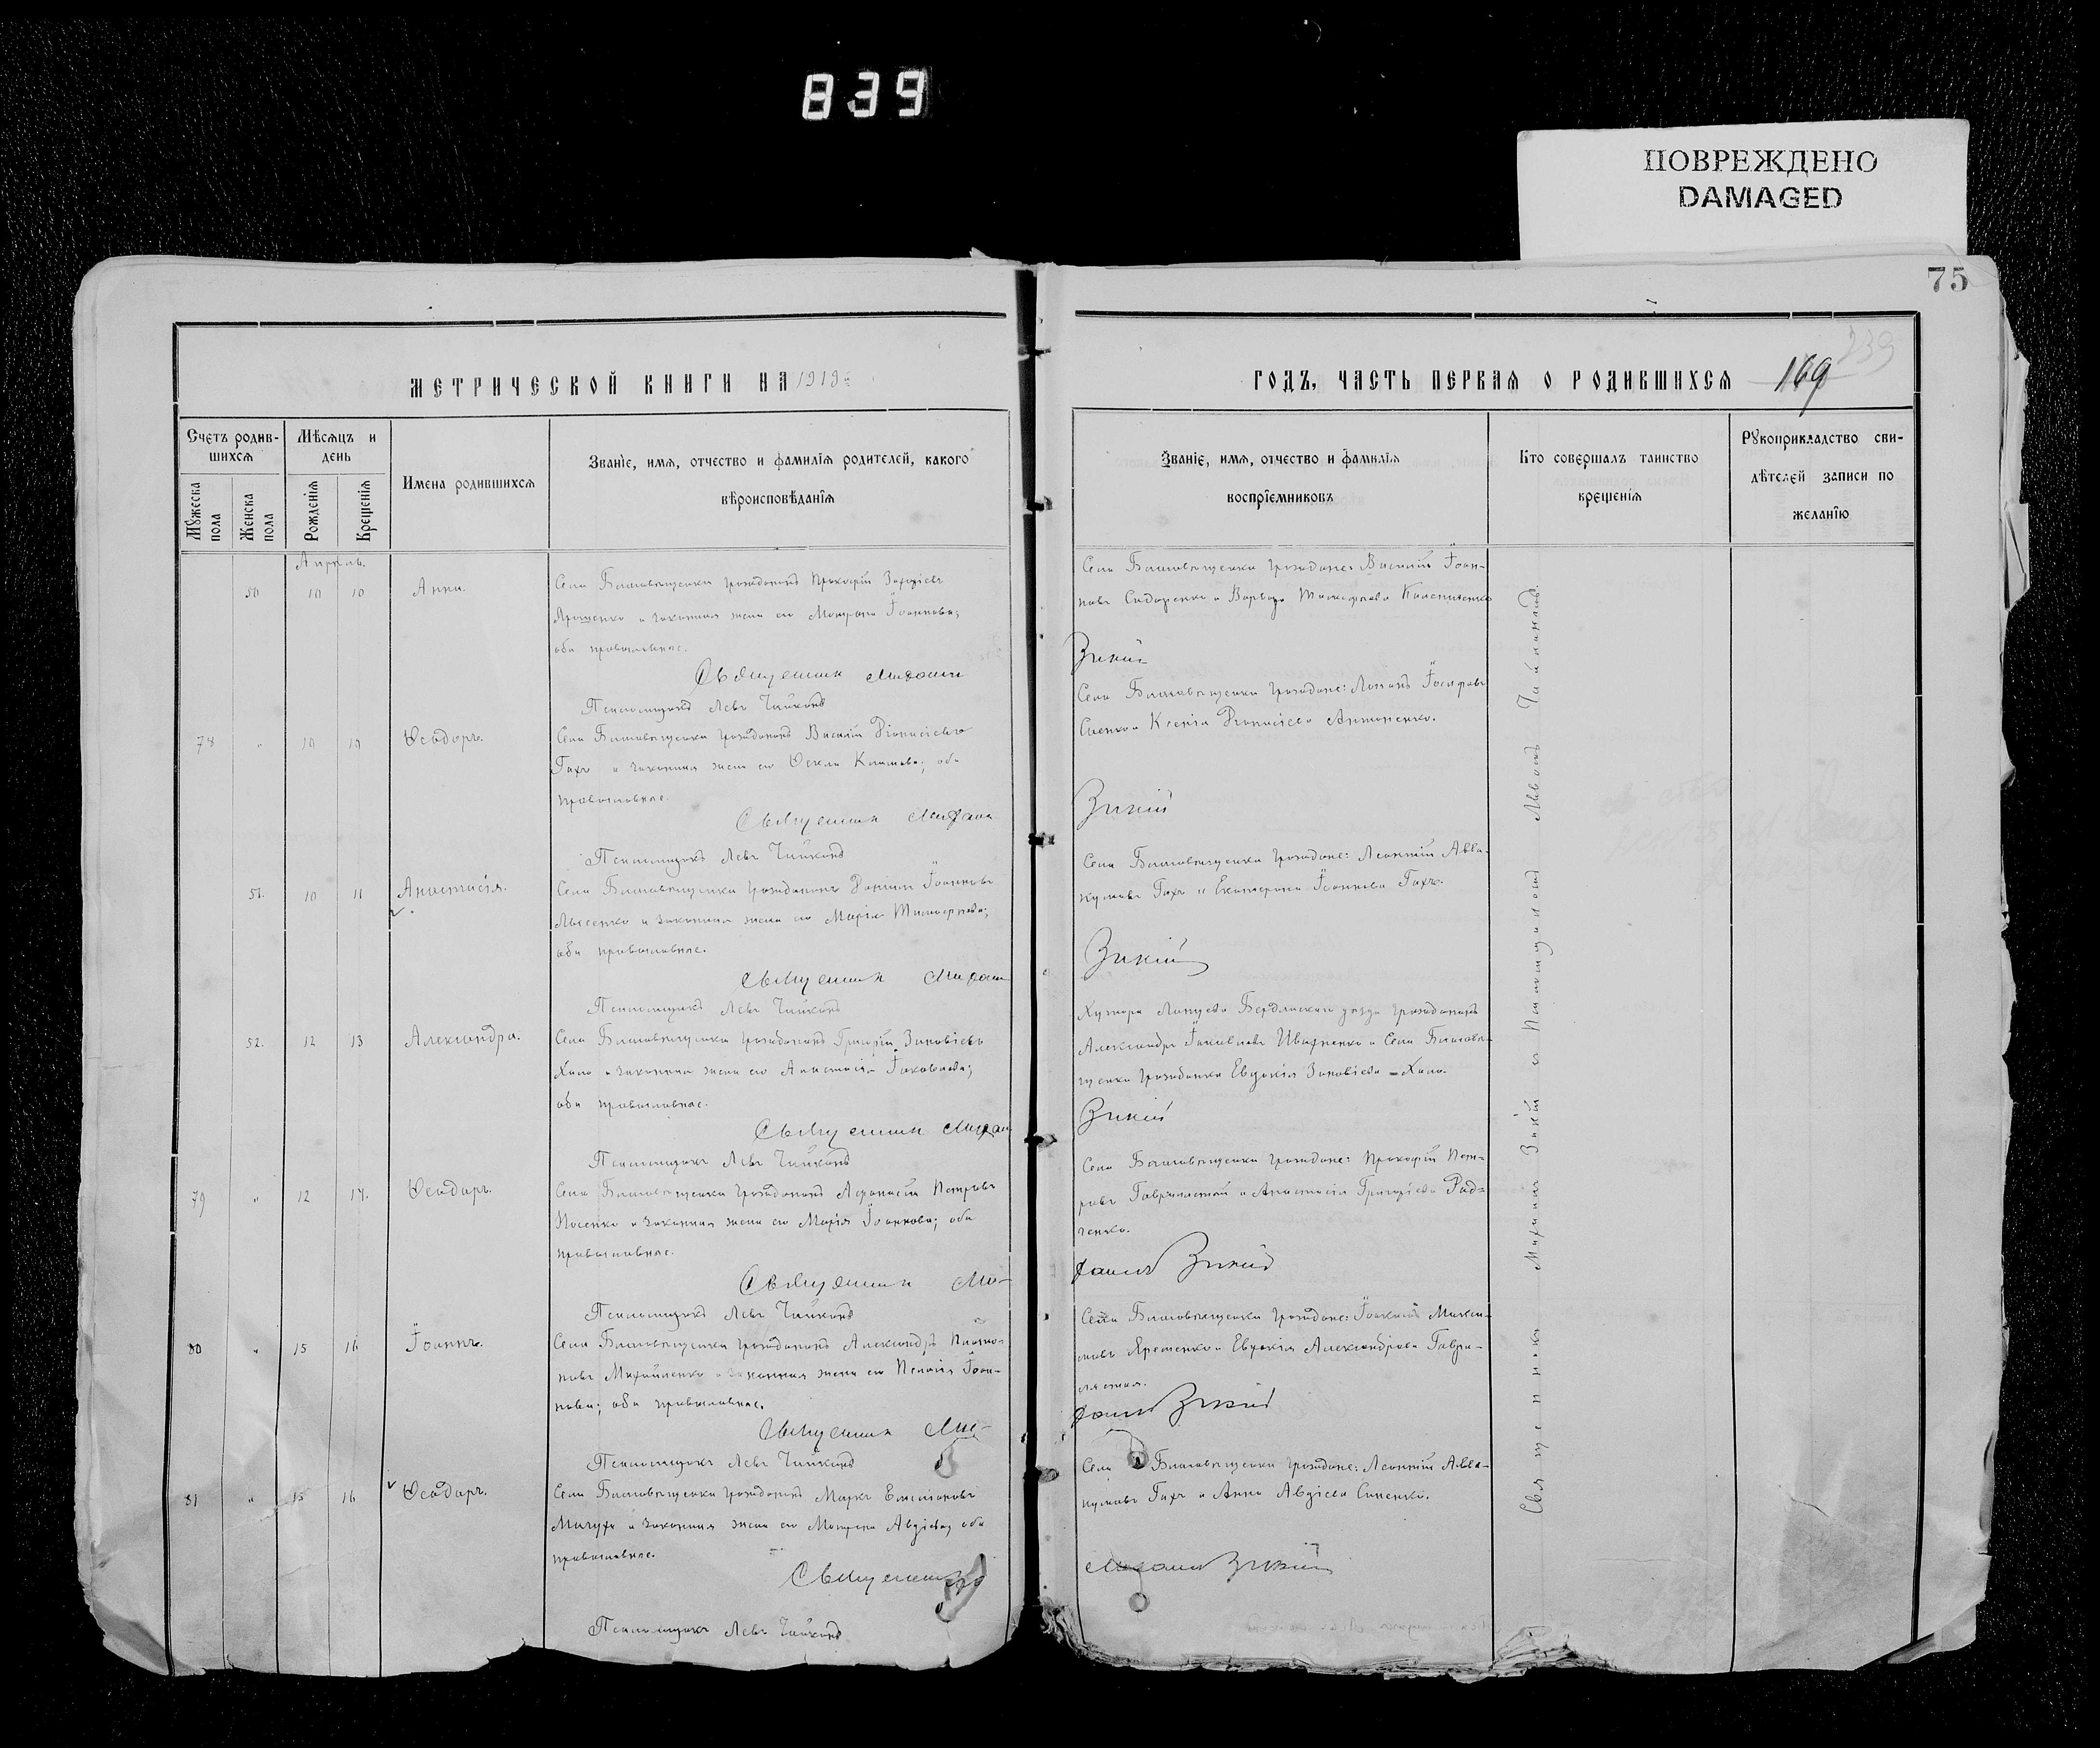 839
ПОВРЕЖДЕНО
DAMAGED
75
239
МЕТРИЧЕСКОЙ КНИГИ НА 1919
ГОДЪ, ЧАСТЬ ПЕРВАЯ О РОДИВШИХСЯ 169
Счетъ родив-
шихся
Мужеска
пола
Женска
пола
Мѣсяцъ и
день
Рожденія
Крещенія
Имена родившихся
Званіе, имя, отчество и фамилія родителей, какого
вѣроисповѣданія
Званіе, имя, отчество и фамилія
воспріемниковъ
Кто совершалъ таинство
крещенія
Рукоприкладство сви-
дѣтелей записи по
желанію
50 10 10 Анна.
Села Благовѣщенки гражданинъ Прокофій
и законная жена его Матрона Іоаннова;
оба православные.
Священник Михаил
Псаломщикъ Левъ Чайкинъ
Села Благовѣщенки граждане: Василій Іоан-
новъ Сидоренко и Варвара
Зикий
78 " 10 10 Ѳеодоръ.
Села Благовѣщенки гражданинъ Василій Діонисіевъ
Гахъ и законная жена его Ѳекла; оба
православные.
Священник Михаил
Псаломщикъ Левъ Чайкинъ
Села Благовѣщенки граждане: Іосифовъ
и Ксенія Діонисіева Антоненко.
Зикий
51. 10 11 Анастасія.
Села Благовѣщенки гражданинъ Даніилъ Іоанновъ
Лысенко и законная жена его Марія Тимофеева;
оба православные.
Священник Михаил
Псаломщикъ Левъ Чайкинъ
Села Благовѣщенки граждане: Леонтій Авва-
кумовъ Гахъ и Екатерина Іоаннова Гахъ.
Зикий
52. 12 13 Александра.
Села Благовѣщенки гражданинъ Григорій Зиновіевъ
Хало и законная жена его Анастасія Іаковлева;
оба православные.
Священник Михаил
Псаломщикъ Левъ Чайкинъ
Хутора Бердянскаго уѣзда гражданинъ
Александръ Іаковлевъ Ивахненко и Села Благовѣ-
щенки гражданка Евдокія Зиновіева Хало.
Зикий
79 " 12 14. Ѳеодоръ.
Села Благовѣщенки гражданинъ Аѳанасій Петровъ
Носенко и законная жена его Марія Іоаннова; оба
православные.
Священник Ми-
Псаломщикъ Левъ Чайкинъ
Села Благовѣщенки граждане: Прокофій Пет-
ровъ и Анастасія Григоріева Рад-
ченко.
хаил Зикий
80 " 15 16 Іоаннъ.
Села Благовѣщенки гражданинъ Александръ Плато-
новъ Михайленко и законная жена его Пелагія Іоан-
нова; оба православные.
Священник Ми-
Псаломщикъ Левъ Чайкинъ
Села Благовѣщенки граждане: Іоакимъ Макси-
мовъ Яременко и Евдокія Александрова Гаври-
хаил Зикий
81 " 15 16 Ѳеодоръ.
Села Благовѣщенки гражданинъ Маркъ Емеліановъ
Мачуха и законная жена его Матрона Авдіева; оба
православные.
Священник
Псаломщикъ Левъ Чайкинъ
Села Благовѣщенки граждане: Леонтій Авва-
кумовъ Гахъ и Анна Авдіева Синенко.
Михаил Зикий
Священникъ Михаилъ Зикій и Псаломщикъ Левъ Чайкинъ.